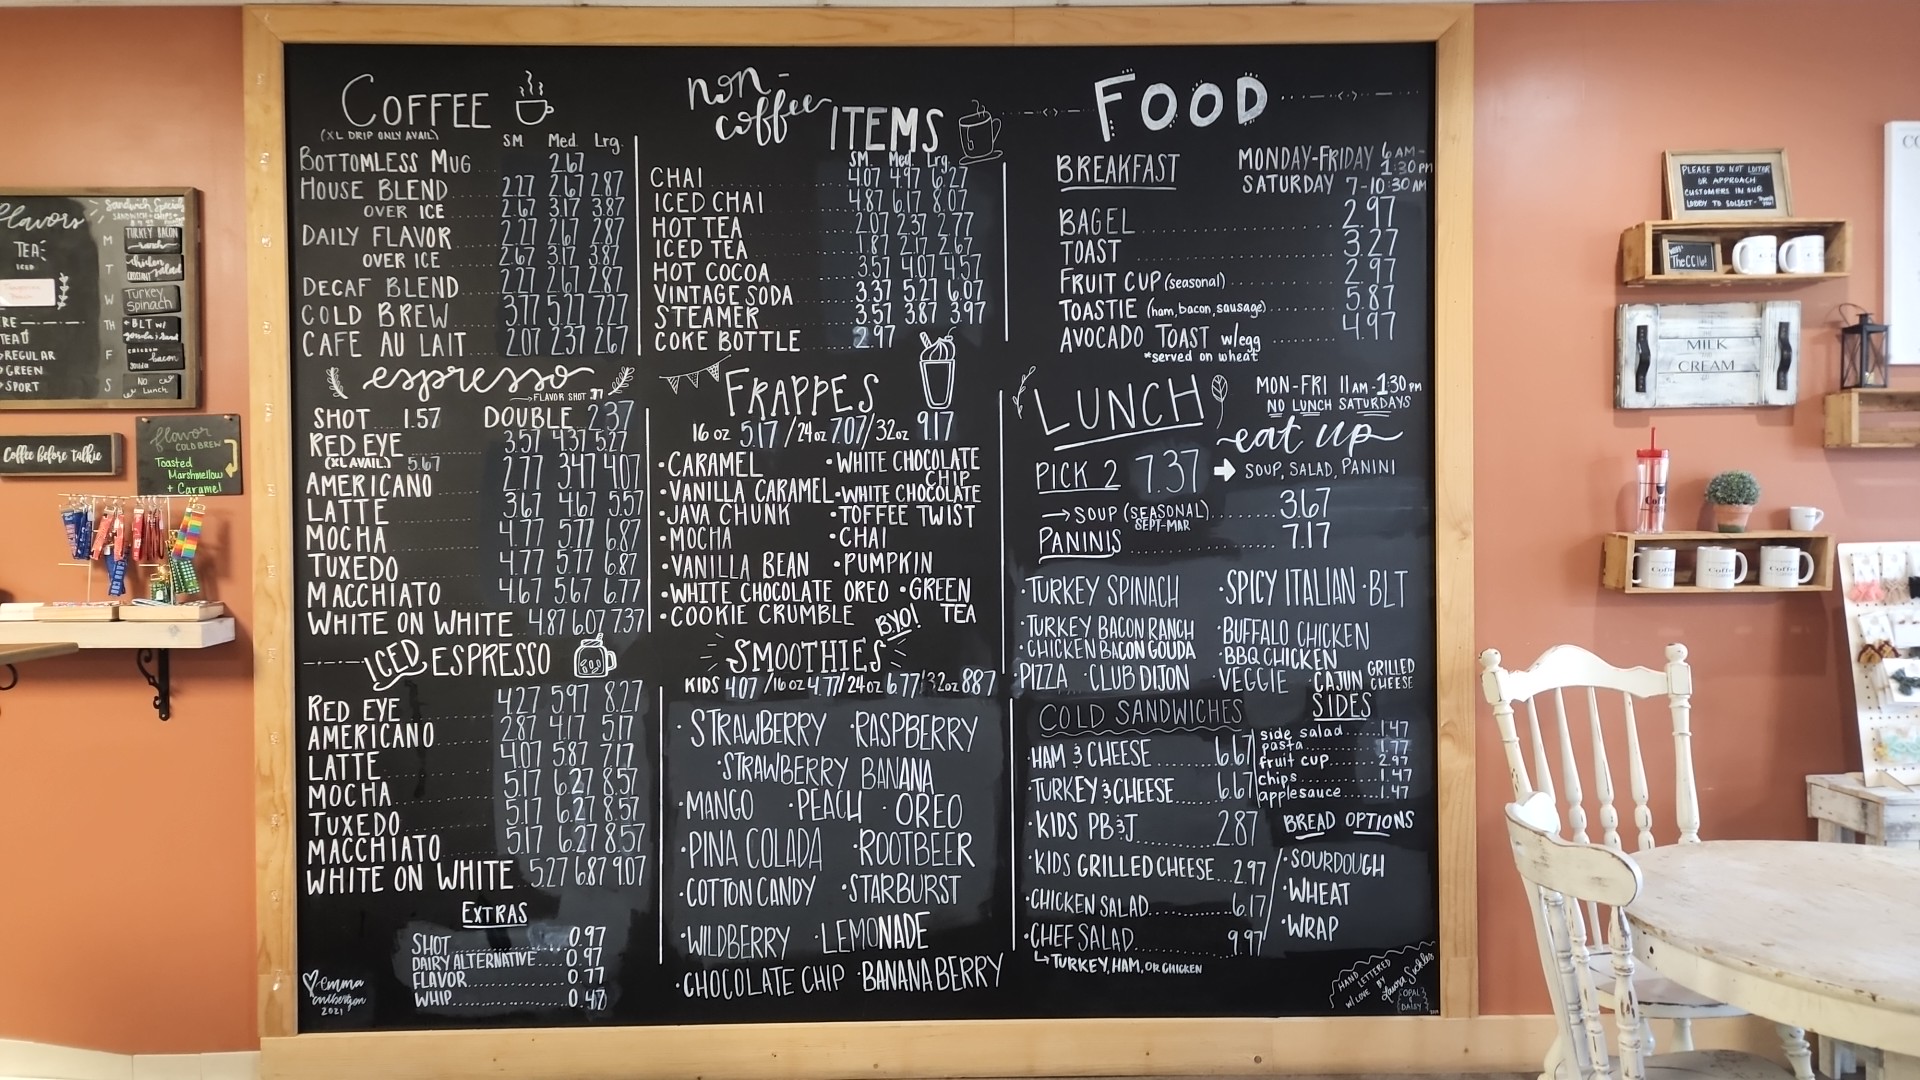 COFFEE
(XL DRIP ONLY AVAIL)
SM Med. Lrg.
BOTTOMLESS MUG 2.67
HOUSE BLEND 2.27 2.67 2.87
OVER ICE 2.67 3.17 3.87
DAILY FLAVOR 2.27 2.67 2.87
OVER ICE 2.67 3.17 3.87
DECAF BLEND 2.27 2.67 2.87
COLD BREW 3.77 5.27 7.27
CAFE AU LAIT 2.07 2.37 2.67
espresso
→ FLAVOR SHOT .77
SHOT 1.57 DOUBLE 2.37
RED EYE 3.57 4.37 5.27
(XL AVAIL) 5.67
AMERICANO 2.77 3.47 4.07
LATTE 3.67 4.67 5.57
MOCHA 4.77 5.77 6.87
TUXEDO 4.77 5.77 6.87
MACCHIATO 4.67 5.67 6.77
WHITE ON WHITE 4.87 6.07 7.37
ICED ESPRESSO
RED EYE 4.27 5.97 8.27
AMERICANO 2.87 4.17 5.17
LATTE 4.07 5.87 7.17
MOCHA 5.17 6.27 8.57
TUXEDO 5.17 6.27 8.57
MACCHIATO 5.17 6.27 8.57
WHITE ON WHITE 5.27 6.87 9.07
EXTRAS
SHOT....0.97
DAIRY ALTERNATIVE....0.97
FLAVOR....0.77
WHIP....0.47
emma
2021
non-coffee ITEMS
SM. Med. Lrg.
CHAI 4.07 4.97 6.27
ICED CHAI 4.87 6.17 8.07
HOT TEA 2.07 2.37 2.77
ICED TEA 1.87 2.17 2.67
HOT COCOA 3.57 4.07 4.57
VINTAGE SODA 3.37 5.27 6.07
STEAMER 3.57 3.87 3.97
COKE BOTTLE 2.97
FRAPPES
16 oz 5.17 / 24 oz 7.07 / 32 oz 9.17
•CARAMEL •WHITE CHOCOLATE CHIP
•VANILLA CARAMEL •WHITE CHOCOLATE
•JAVA CHUNK •TOFFEE TWIST
•MOCHA •CHAI
•VANILLA BEAN •PUMPKIN
•WHITE CHOCOLATE OREO •GREEN TEA
•COOKIE CRUMBLE BYO!
SMOOTHIES
KIDS 4.07 / 16 oz 4.77 / 24 oz 6.77 / 32 oz 8.87
•STRAWBERRY •RASPBERRY
•STRAWBERRY BANANA
•MANGO •PEACH •OREO
•PINA COLADA •ROOTBEER
•COTTON CANDY •STARBURST
•WILDBERRY •LEMONADE
•CHOCOLATE CHIP •BANANABERRY
FOOD
BREAKFAST MONDAY-FRIDAY 6 AM-1:30 PM
SATURDAY 7-10:30 AM
BAGEL 2.97
TOAST 3.27
FRUIT CUP (seasonal) 2.97
TOASTIE (ham, bacon, sausage) 5.87
AVOCADO TOAST w/egg 4.97
*served on wheat
LUNCH MON-FRI 11 AM-1:30 PM
NO LUNCH SATURDAYS
eat up
PICK 2 7.37 → SOUP, SALAD, PANINI
→ SOUP (SEASONAL) 3.67
SEPT-MAR
PANINIS 7.17
•TURKEY SPINACH •SPICY ITALIAN •BLT
•TURKEY BACON RANCH •BUFFALO CHICKEN
•CHICKEN BACON GOUDA •BBQ CHICKEN
•PIZZA •CLUB DIJON •VEGGIE •CAJUN GRILLED CHEESE
COLD SANDWICHES
•HAM & CHEESE 6.67
•TURKEY & CHEESE 6.67
•KIDS PB&J 2.87
•KIDS GRILLED CHEESE 2.97
•CHICKEN SALAD 6.17
•CHEF SALAD 9.97
↳TURKEY, HAM, OR CHICKEN
SIDES
side salad 1.47
pasta 1.77
fruit cup 2.97
chips 1.47
applesauce 1.47
BREAD OPTIONS
•SOURDOUGH
•WHEAT
•WRAP
HAND LETTERED
W/ LOVE BY
OPAL
DAISY
Flavors
TEA:
ICED
REGULAR
GREEN
SPORT
Sandwich Special
M TURKEY BACON ranch
T chicken salad
W Turkey Spinach
TH BLT w/
F bacon
S NO Lunch
Coffee before talkie
flavor
COLD BREW
Toasted
Marshmellow
+ Caramel
PLEASE DO NOT LOITER
OR APPROACH
CUSTOMERS IN OUR
LOBBY TO SOLICIT-
The CC
MILK
CREAM